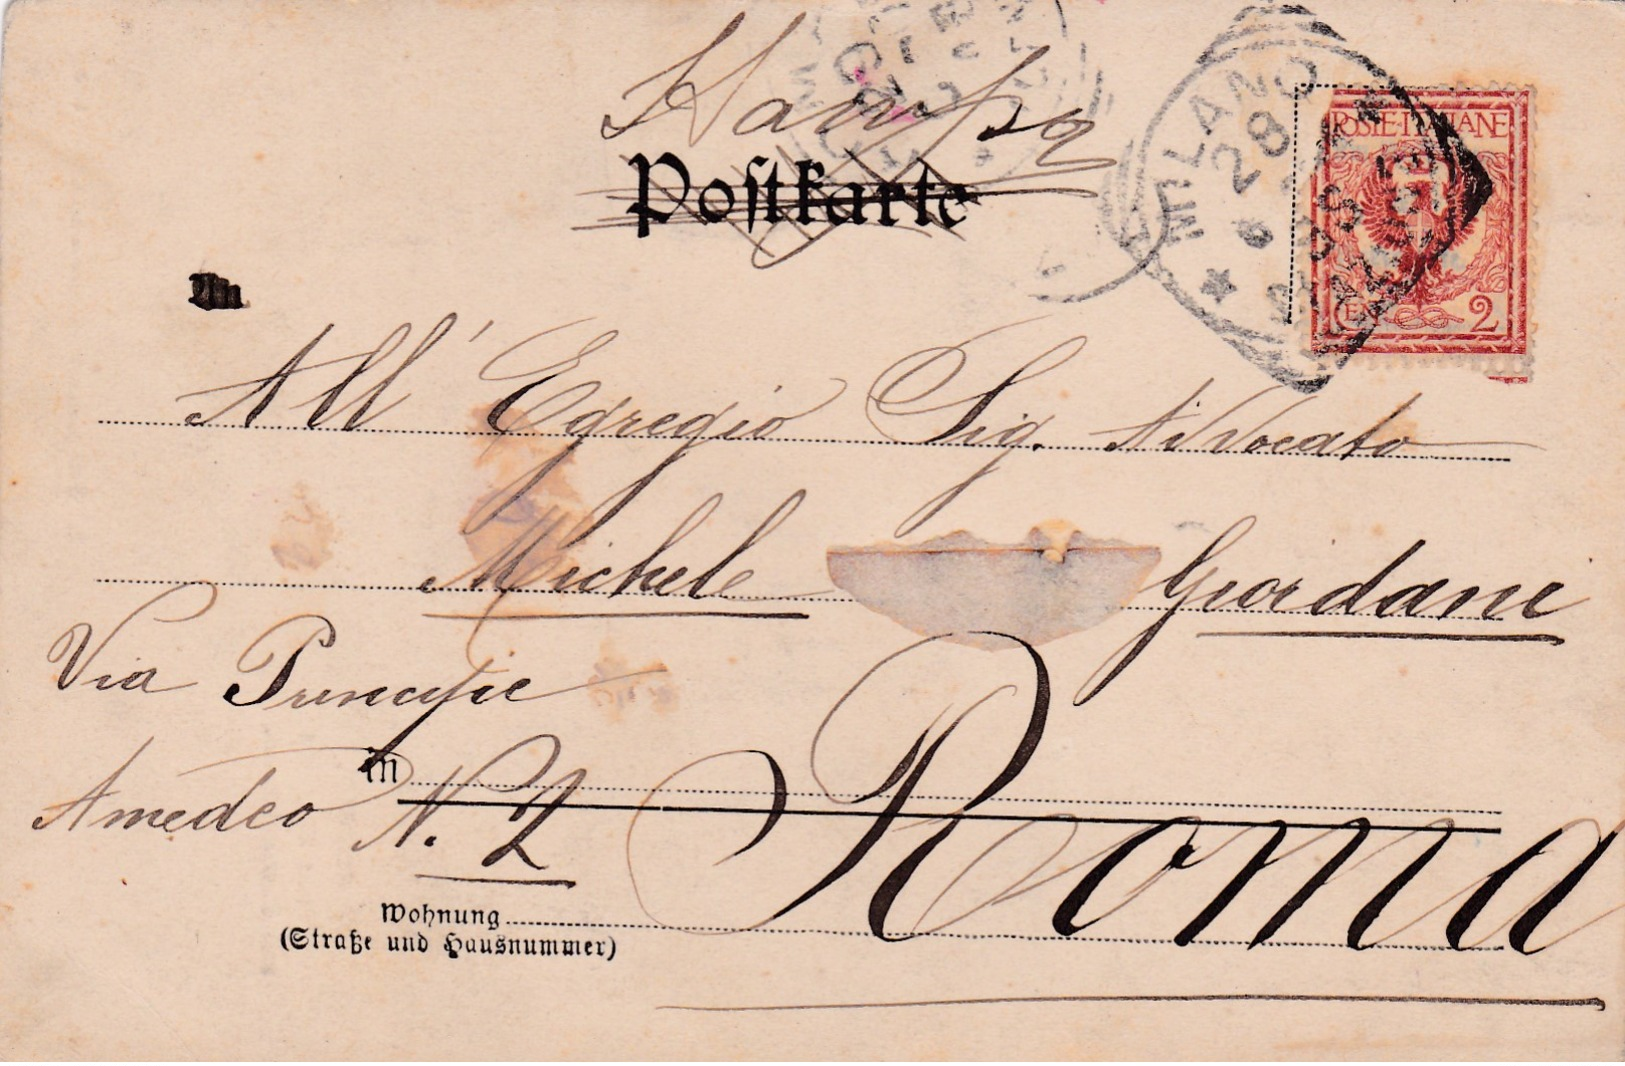 Stampe
Postkarte
MILANO
20
POSTE ITALIANE
2
An
All' Egregio Sig. Avvocato
Michele Giordani
Via Principe
in
Amedeo N. 2
Roma
Wohnung
(Straße und Hausnummer)